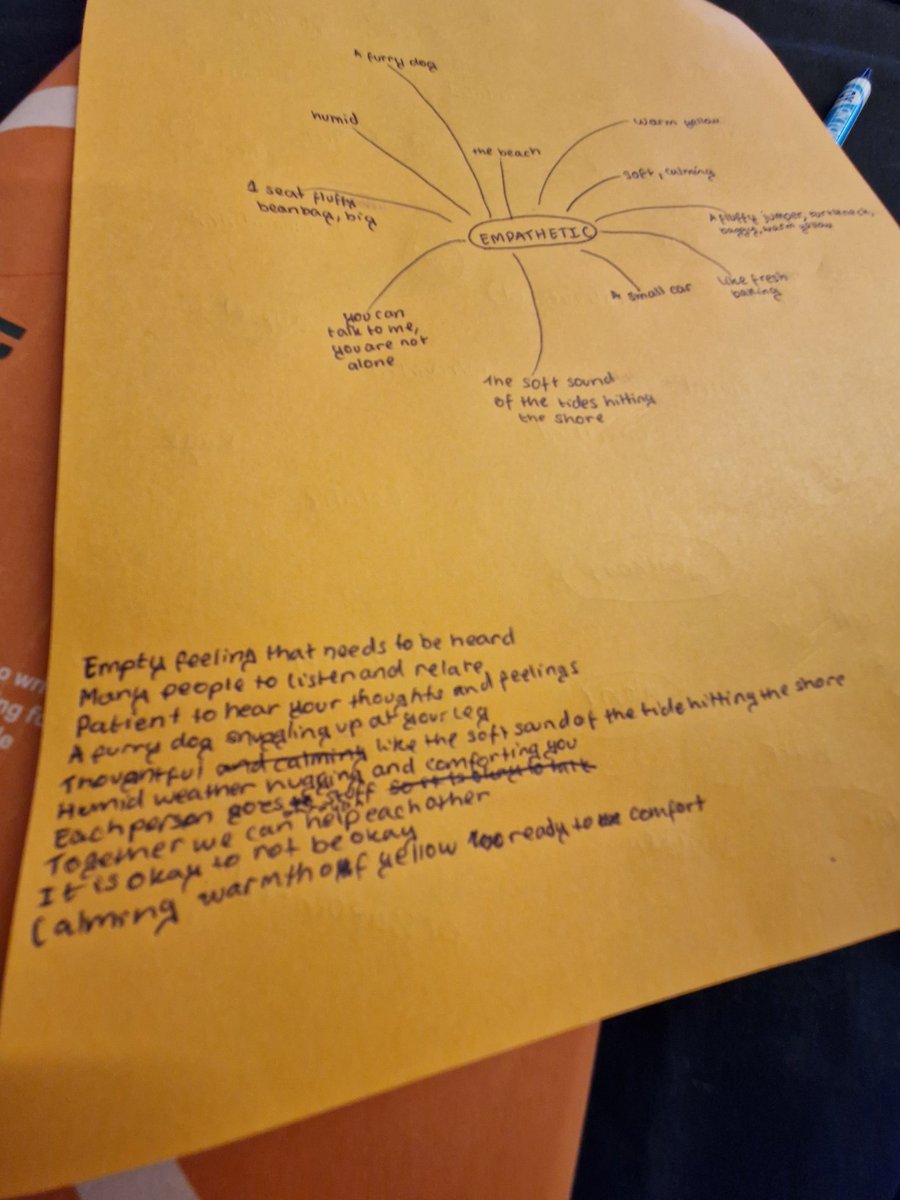 A furry dog
humid
the beach
warm yellow
soft, calming
1 seat fluffy
beanbag, big
A fluffy jumper, turtleneck,
baggy, warm yellow
EMPATHETIC
like fresh
baking
A small car
you can
talk to me,
you are not
alone
The soft sound
of the tides hitting
the shore
Empty feeling that needs to be heard
Many people to listen and relate
Patient to hear your thoughts and feelings
A furry dog snuggling up at your leg
Thoughtful and calming like the soft sound of the tide hitting the shore
Humid weather hugging and comforting you
Each person goes stuff so it is okay to talk
Together we can help each other
It is okay to not be okay
Calming warmth of yellow ready to comfort